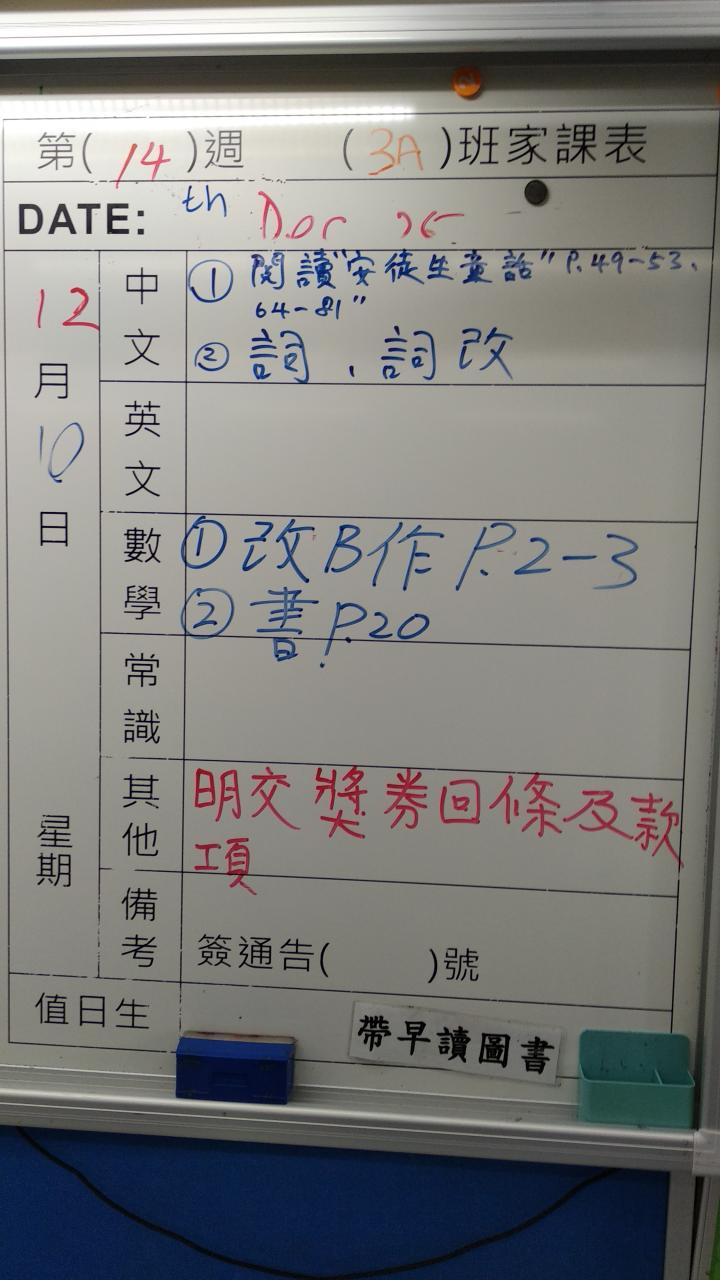 第( 14 )週 ( 3A )班家課表
DATE: th
12月10日 星期
中文 ① 閱讀"安徒生童話" P.49-53、
64-81"
② 詞、詞改
英文
數學 ① 改B作 P.2-3
② 書 P.20
常識
其他 明交獎券回條及款
項
備考 簽通告( )號
值日生
帶早讀圖書